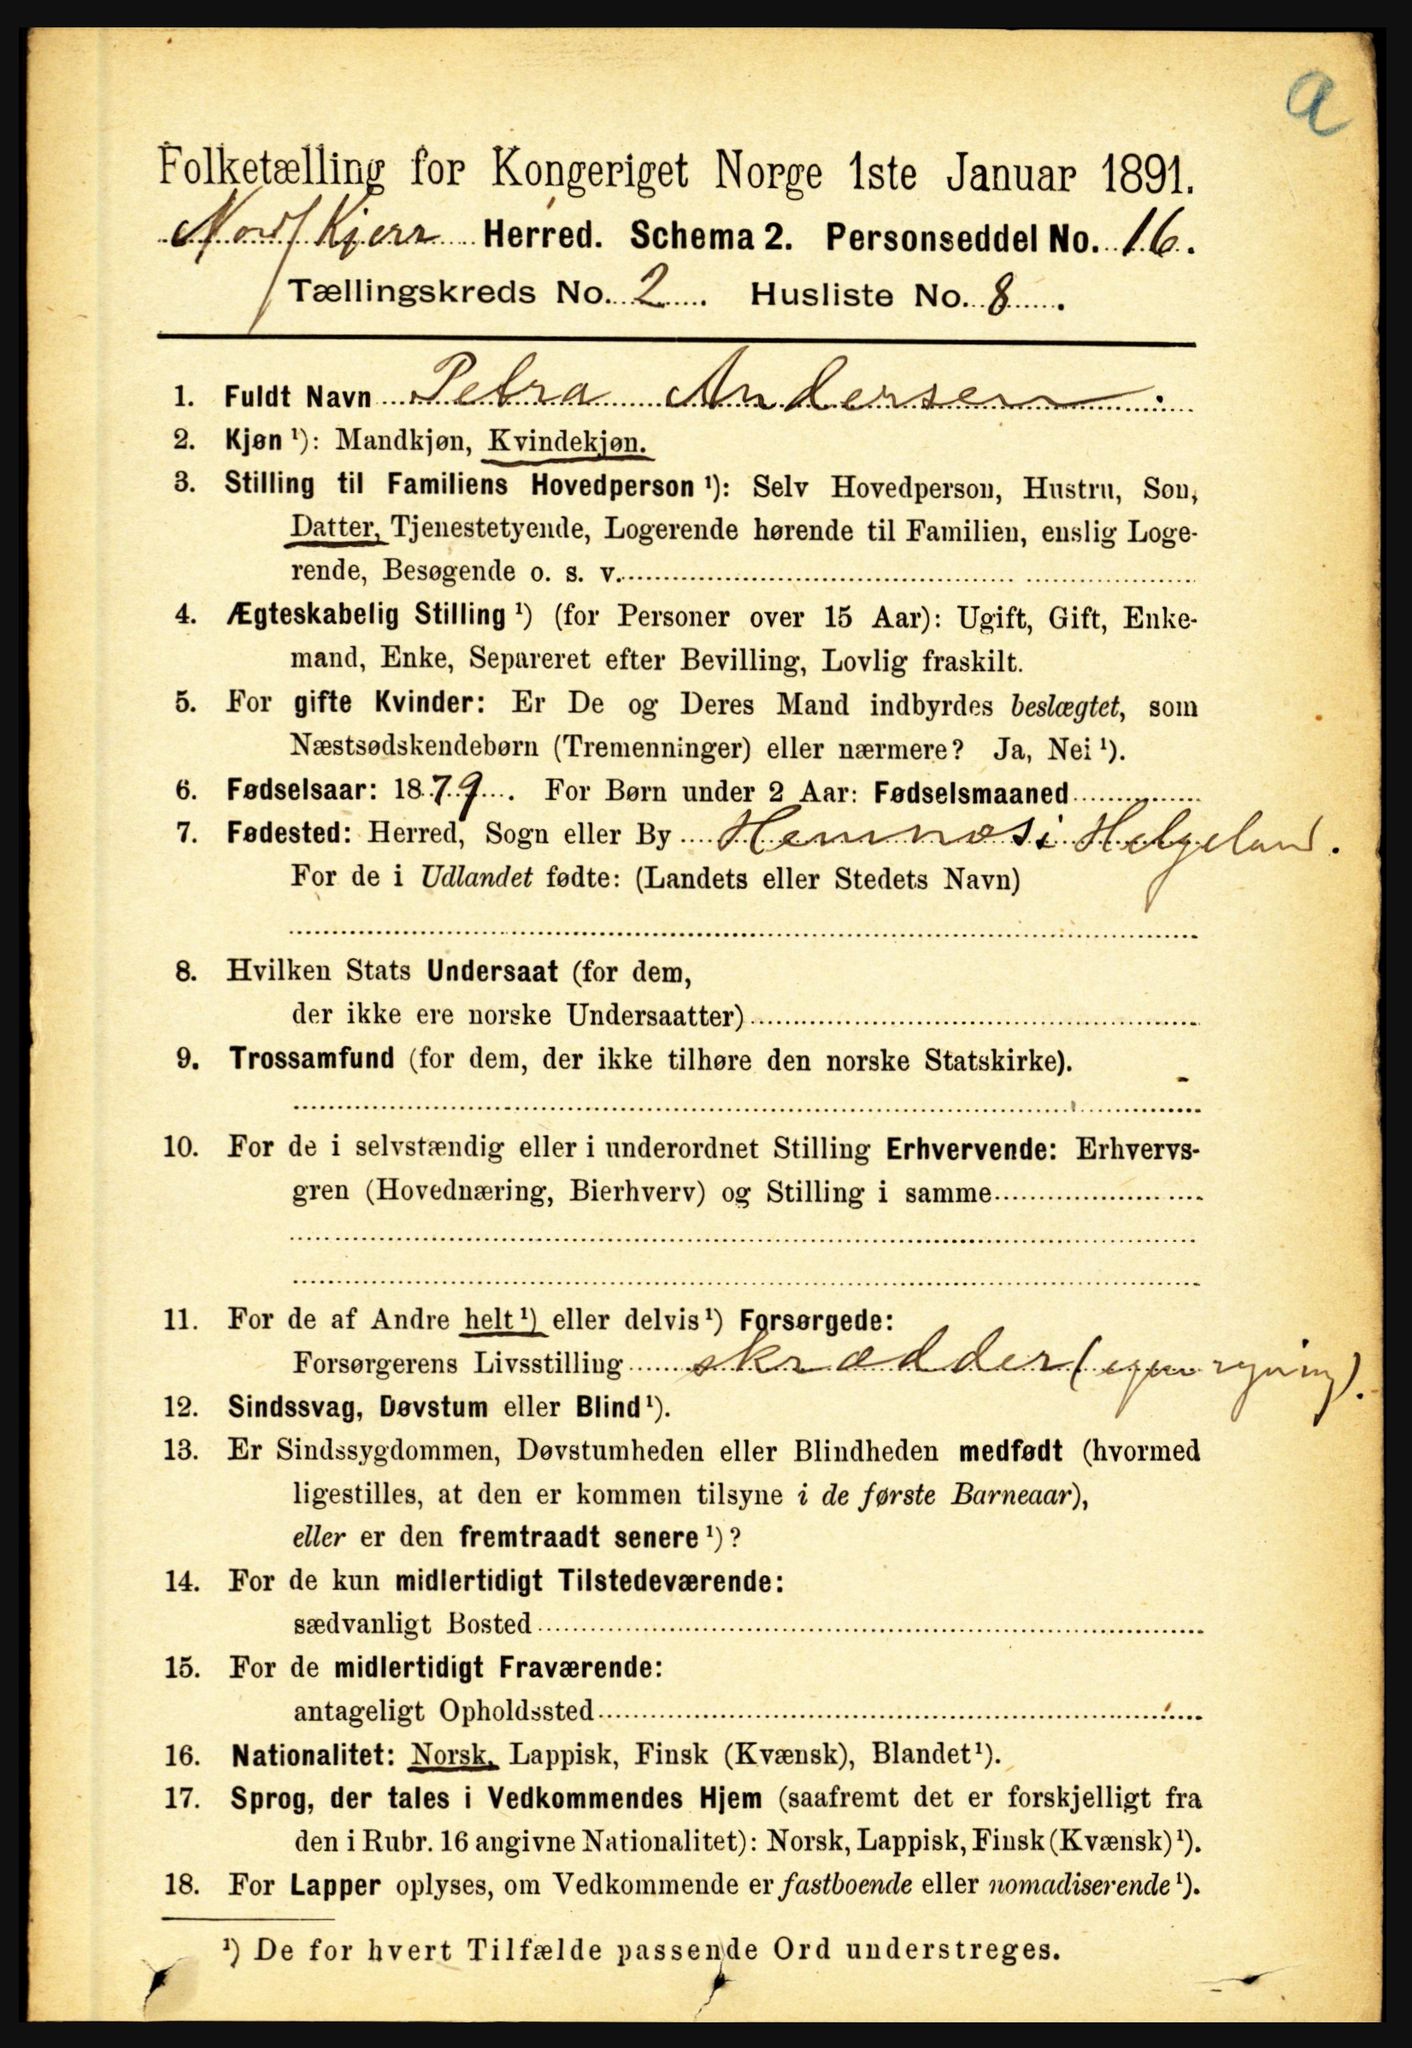 a
Folketælling for Kongeriget Norge 1ste Januar 1891.
Nordf Kjerr Herred. Schema 2. Personseddel No. 16.
Tællingskreds No. 2. Husliste No. 8.
1. Fuldt Navn Petra Andersen.
2. Kjøn ¹): Mandkjøn, Kvindekjøn.
3. Stilling til Familiens Hovedperson ¹): Selv Hovedperson, Hustru, Søn,
Datter, Tjenestetyende, Logerende hørende til Familien, enslig Loge-
rende, Besøgende o. s. v.
4. Ægteskabelig Stilling ¹) (for Personer over 15 Aar): Ugift, Gift, Enke-
mand, Enke, Separeret efter Bevilling, Lovlig fraskilt.
5. For gifte Kvinder: Er De og Deres Mand indbyrdes beslægtet, som
Næstsødskendebørn (Tremenninger) eller nærmere? Ja, Nei ¹).
6. Fødselsaar: 1879. For Børn under 2 Aar: Fødselsmaaned
7. Fødested: Herred, Sogn eller By Hemnæs i Helgeland.
For de i Udlandet fødte: (Landets eller Stedets Navn)
8. Hvilken Stats Undersaat (for dem,
der ikke ere norske Undersaatter)
9. Trossamfund (for dem, der ikke tilhøre den norske Statskirke).
10. For de i selvstændig eller i underordnet Stilling Erhvervende: Erhvervs-
gren (Hovednæring, Bierhverv) og Stilling i samme
11. For de af Andre helt ¹) eller delvis ¹) Forsørgede:
Forsørgerens Livsstilling skrædder (egen regning).
12. Sindssvag, Døvstum eller Blind ¹).
13. Er Sindssygdommen, Døvstumheden eller Blindheden medfødt (hvormed
ligestilles, at den er kommen tilsyne i de første Barneaar),
eller er den fremtraadt senere ¹)?
14. For de kun midlertidigt Tilstedeværende:
sædvanligt Bosted
15. For de midlertidigt Fraværende:
antageligt Opholdssted
16. Nationalitet: Norsk, Lappisk, Finsk (Kvænsk), Blandet ¹).
17. Sprog, der tales i Vedkommendes Hjem (saafremt det er forskjelligt fra
den i Rubr. 16 angivne Nationalitet): Norsk, Lappisk, Finsk (Kvænsk) ¹).
18. For Lapper oplyses, om Vedkommende er fastboende eller nomadiserende ¹).
¹) De for hvert Tilfælde passende Ord understreges.